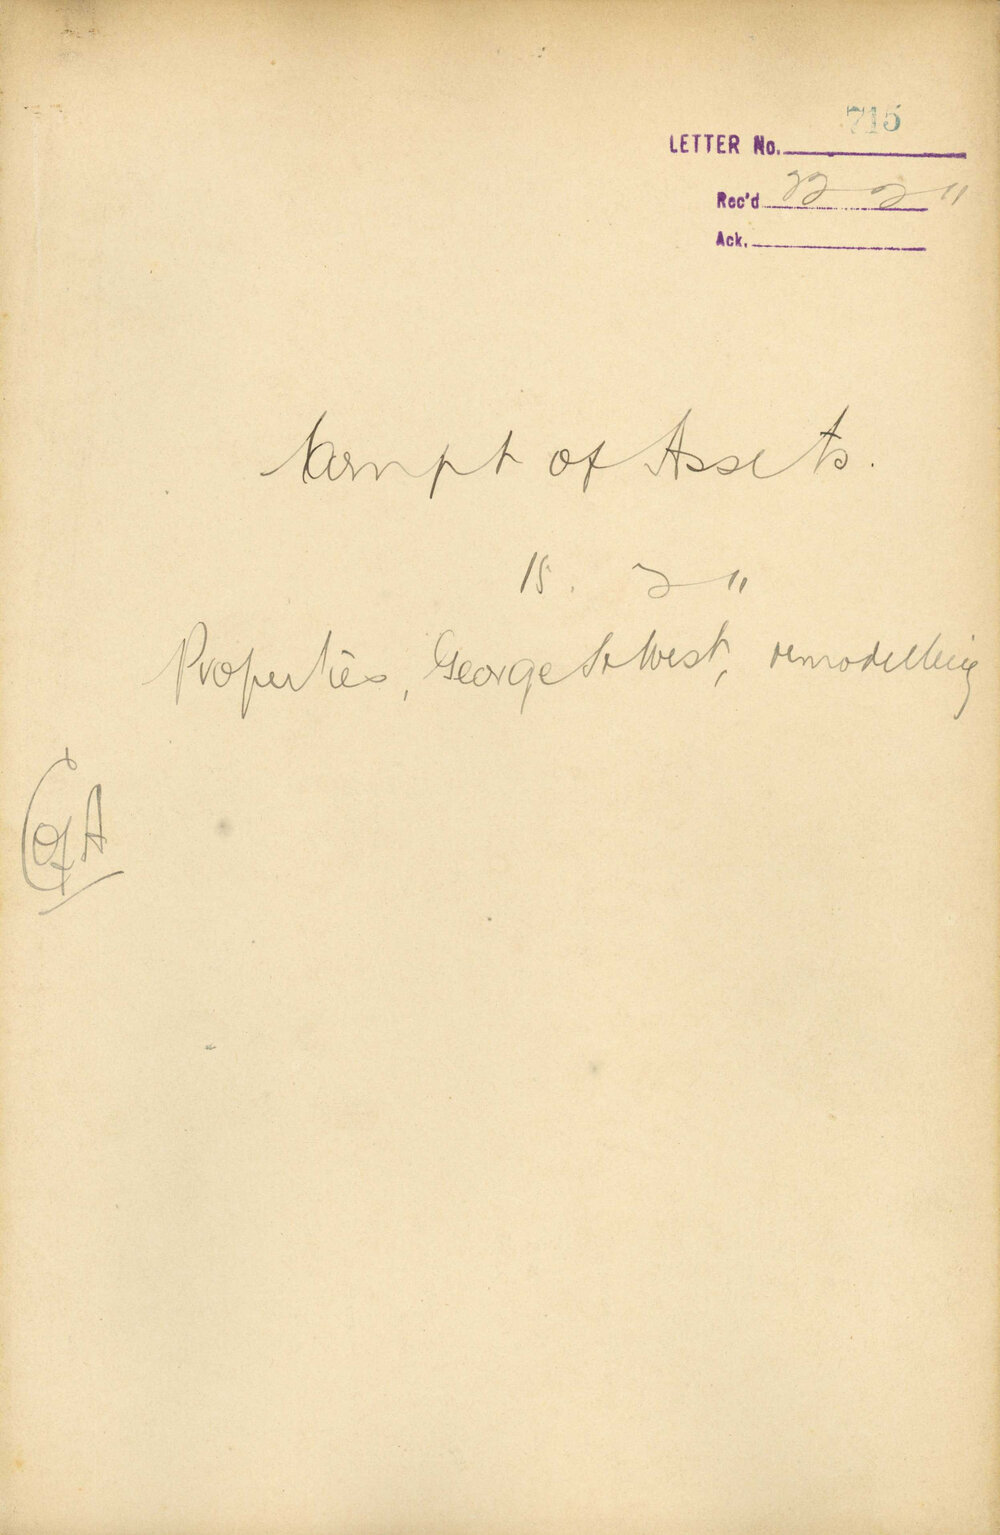 715
LETTER No.
Rec'd 22 2 11
Ack.
of Assets.
15. 2 11
Properties, George St West, remodelling
C of A